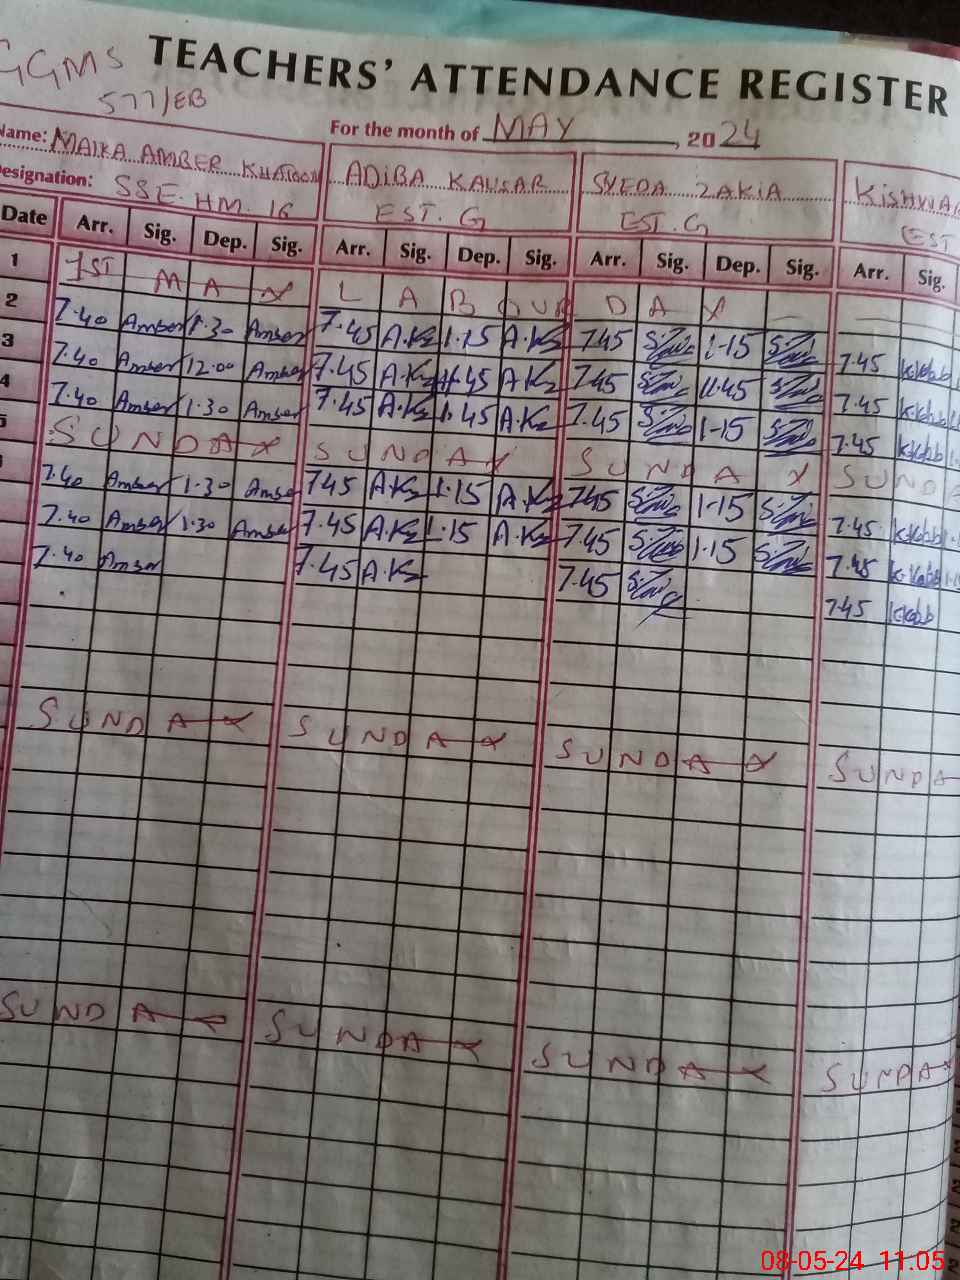 GGMS TEACHERS' ATTENDANCE REGISTER
577/EB
For the month of MAY, 2024
Name: MAIKA AMBER KHATOON ADIBA KAUSAR SYEDA ZAKIA KISHWAR
Designation: SSE. HM. 16 EST. G EST. G EST
Date Arr. Sig. Dep. Sig. Arr. Sig. Dep. Sig. Arr. Sig. Dep. Sig. Arr. Sig.
1 1ST MAY LABOUR DAY
2 7.40 Amber 1.30 Amber 7.45 A.Kz 1.15 A.Kz 7.45 1-15 7.45
3 7.40 Amber 12.00 Amber 7.45 A.Kz 11.45 A.Kz 7.45 11.45 7.45
4 7.40 Amber 1.30 Amber 7.45 A.Kz 1.45 A.Kz 7.45 1-15 7.45
5 SUNDAY SUNDAY SUNDAY SUNDA
7.40 Amber 1.30 Amber 7.45 A.Kz 1.15 A.Kz 7.45 1-15 7.45
7.40 Amber 1.30 Amber 7.45 A.Kz 1.15 A.Kz 7.45 1.15 7.45
7.40 Amber 7.45 A.Kz 7.45 7.45
SUNDAY SUNDAY SUNDAY SUNDA
SUNDAY SUNDAY SUNDAY SUNDAY
08-05-24 11.05